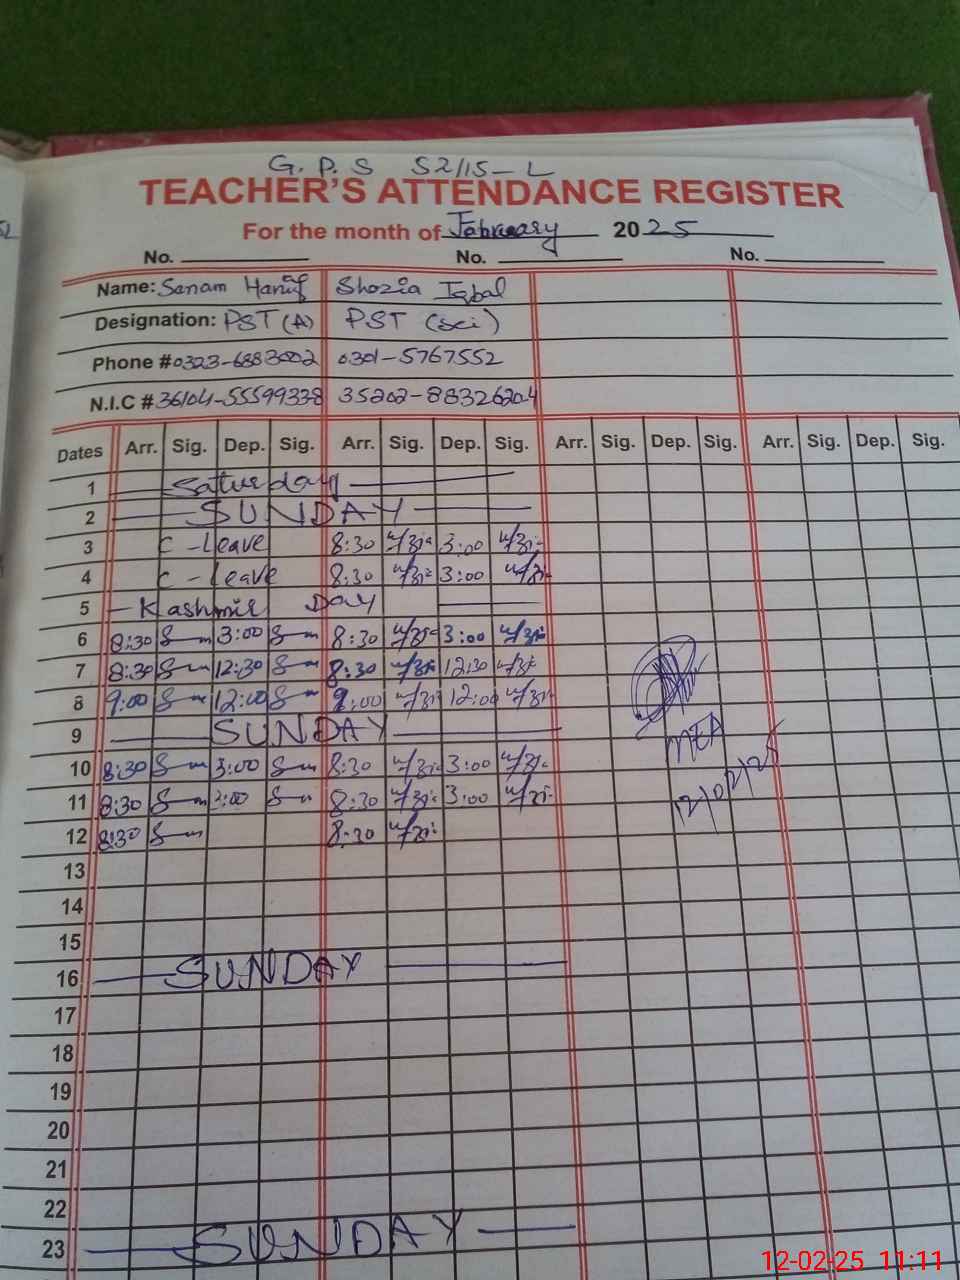 G. P. S 52/15-L
TEACHER'S ATTENDANCE REGISTER
For the month of February 2025
No. No. No.
Name: Sanam Hanif Shozia Iqbal
Designation: PST (A) PST (Sci)
Phone # 0323-6883002 0301-5767552
N.I.C # 36104-55599338 35202-88326204
Dates Arr. Sig. Dep. Sig. Arr. Sig. Dep. Sig. Arr. Sig. Dep. Sig. Arr. Sig. Dep. Sig.
1 Saturday
2 SUNDAY
3 C-Leave 8:30 3:00
4 C-Leave 8:30 3:00
5 Kashmir Day
6 8:30 3:00 8:30 3:00
7 8:30 12:30 8:30 12:30
8 9:00 12:00 9:00 12:00
9 SUNDAY
10 8:30 3:00 8:30 3:00
11 8:30 3:00 8:30 3:00
12 8:30 8:30
MEA
12/02/25
13
14
15
16 SUNDAY
17
18
19
20
21
22
23 SUNDAY
12-02-25 11:11